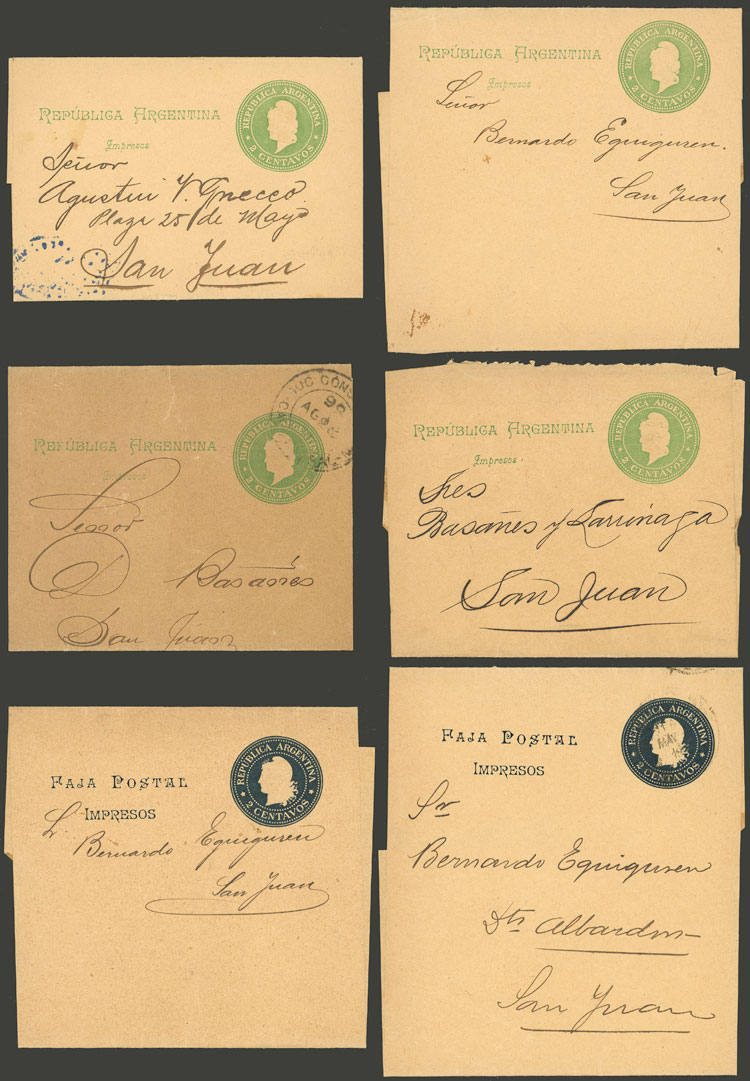 REPÚBLICA ARGENTINA
REPÚBLICA ARGENTINA
2 CENTAVOS
Impresos
Señor
Agustin V. Gnecco
Plaza 25 de Mayo
San Juan
REPÚBLICA ARGENTINA
REPÚBLICA ARGENTINA
2 CENTAVOS
Impresos
Señor
Bernardo Eguiguren.
San Juan
REPÚBLICA ARGENTINA
REPÚBLICA ARGENTINA
2 CENTAVOS
Impresos
96
AGO
Basañes
San Juan
REPÚBLICA ARGENTINA
REPÚBLICA ARGENTINA
2 CENTAVOS
Impresos
Sres
Basañes y Larrinaga
San Juan
FAJA POSTAL
IMPRESOS
REPÚBLICA ARGENTINA
2 CENTAVOS
Sr
Bernardo Eguiguren
San Juan
FAJA POSTAL
IMPRESOS
REPÚBLICA ARGENTINA
2 CENTAVOS
MAY
Sr
Bernardo Eguiguren
Albardon
San Juan